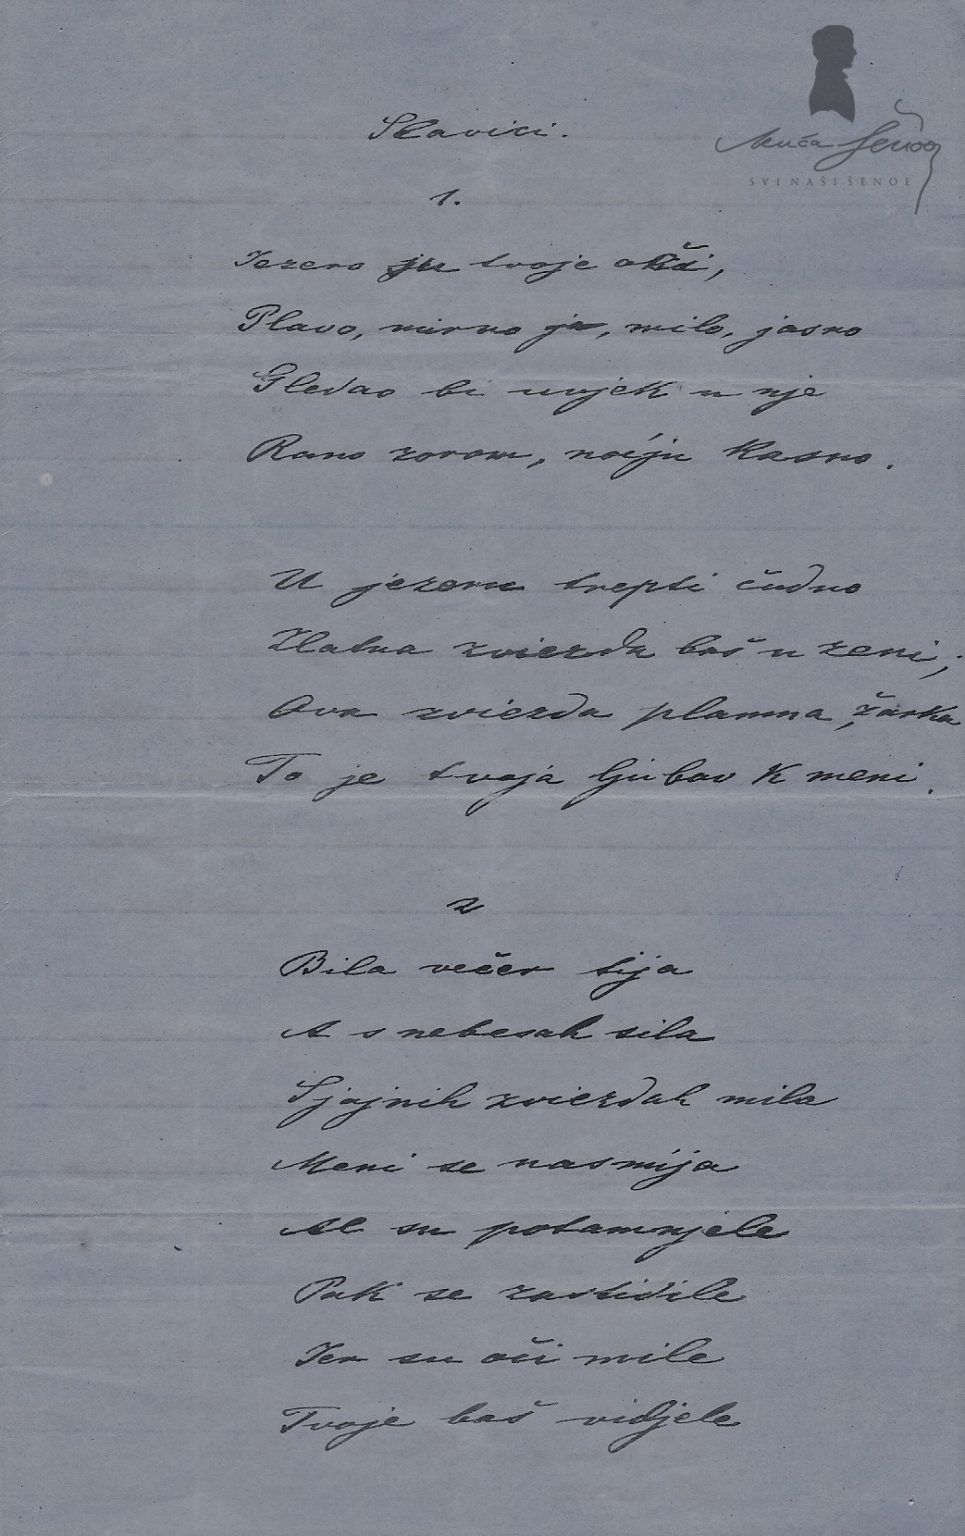 Slavici.
Kuća Šenoa
SVI NAŠI ŠENOE
1.
Jezero su tvoje oči,
Plavo, mirno, milo, jasno
Gledao bi uvjek u nje
Rano zorom, noćju kasno.
U jezeru trepti čudno
Zlatna zviezda baš u zeni;
Ova zviezda plamna, žarka
To je tvoja ljubav k meni.
2
Bila večer sija
A s nebesah sila
Sjajnih zviezdah mila
Meni se nasmija
Al su potamnjele
Pak se zastidile
Jer su oči mile
Tvoje baš vidjele